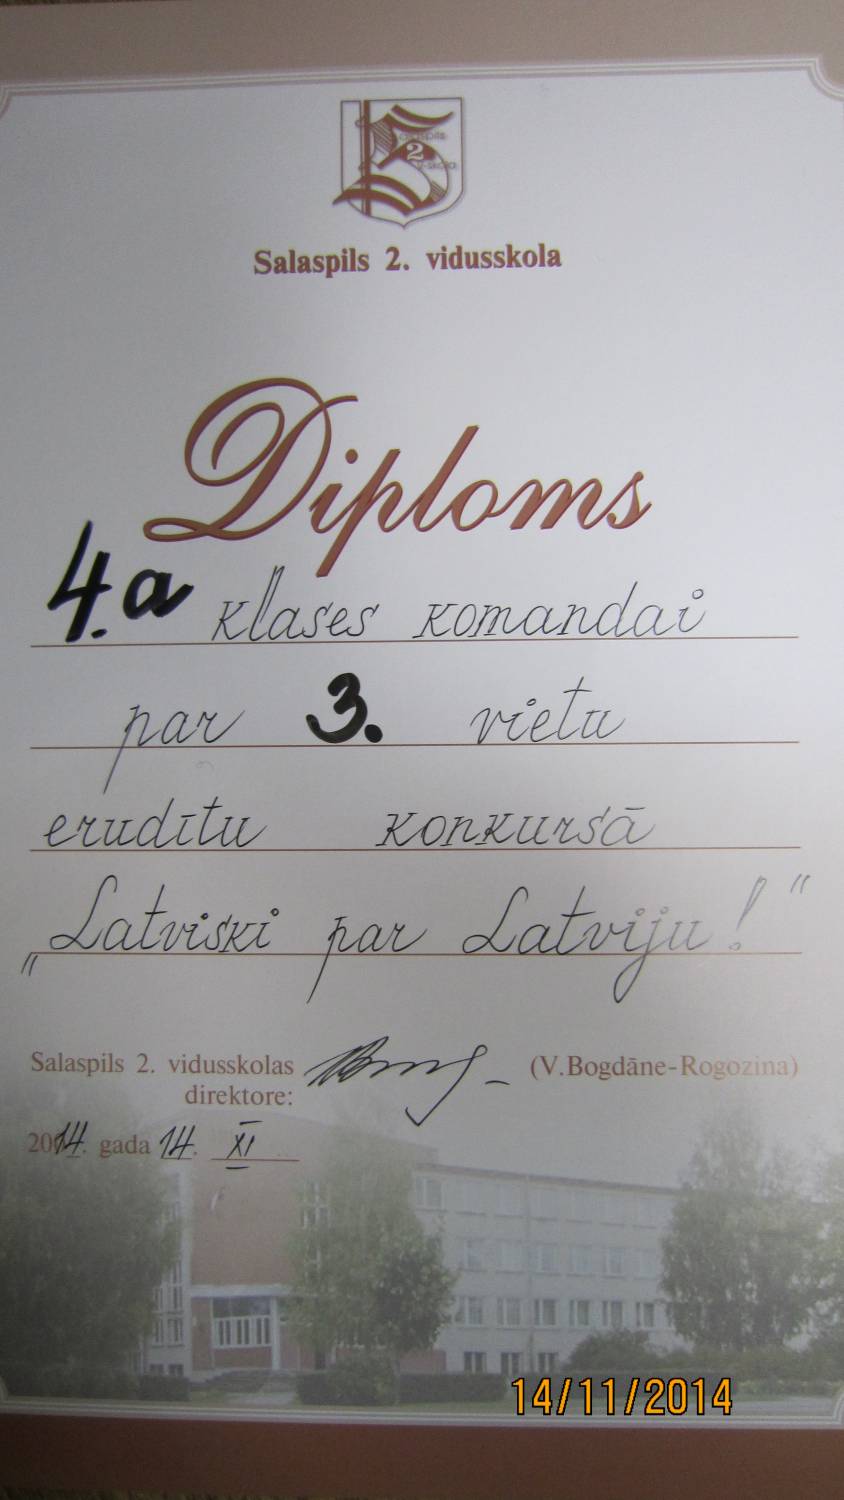 Salaspils
2
v-skola
Salaspils 2. vidusskola
Diploms
4.a klases komandai
par 3. vietu
erudītu konkursā
„Latviski par Latviju!"
Salaspils 2. vidusskolas (V.Bogdāne-Rogozina)
direktore:
2014. gada 14. XI
14/11/2014